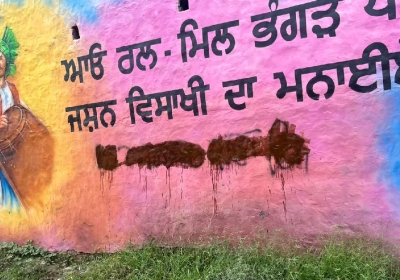 ਆਓ ਰਲ-ਮਿਲ ਭੰਗੜੇ
ਜਸ਼ਨ ਵਿਸਾਖੀ ਦਾ ਮਨਾਈਏ